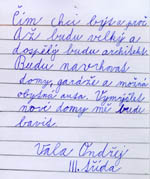 Čím chci být a proč
Až budu velký a
dospělý budu architekt.
Budu navrhovat
domy, garáže a možná
obytná auta. Vymýšlet
nové domy mě bude
bavit.
Vála Ondřej
III. třída